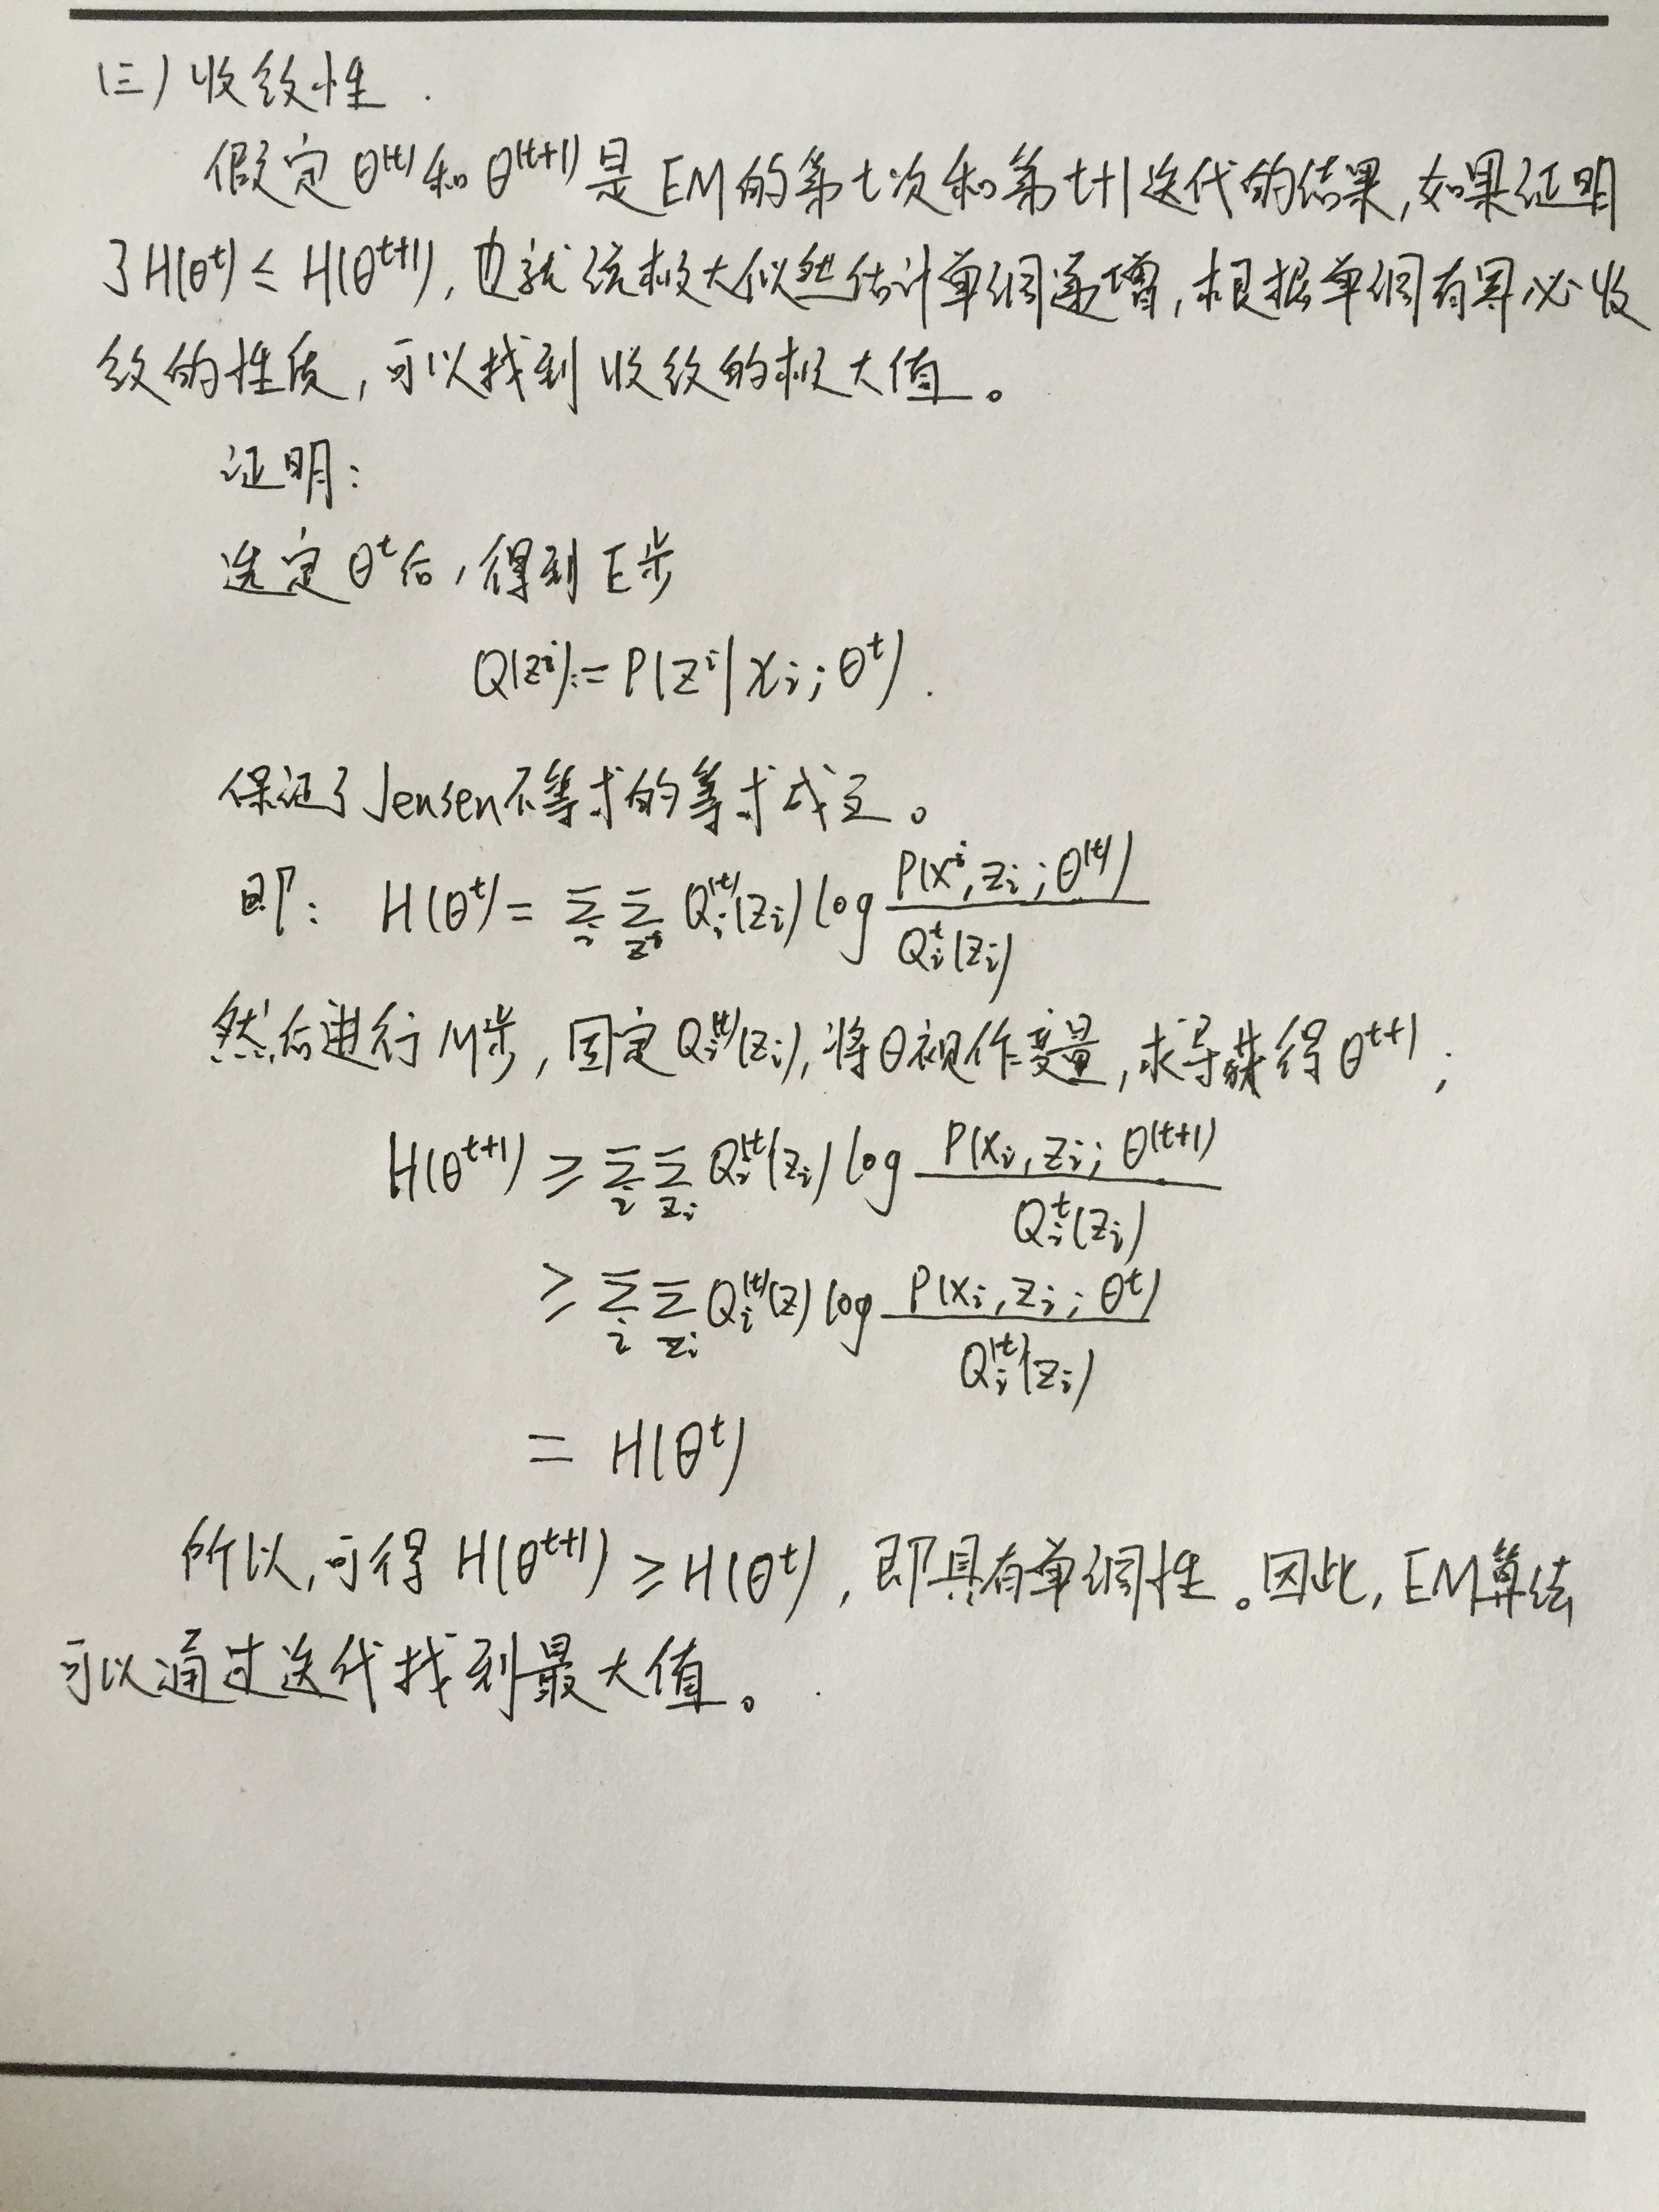 (三) 收敛性.
假定 θ^(t) 和 θ^(t+1) 是 EM 的第 t 次和第 t+1 迭代的结果, 如果证明
了 H(θ^t) ≤ H(θ^(t+1)), 也就说极大似然估计单调递增, 根据单调有界必收
敛的性质, 可以找到收敛的极大值。
证明:
选定 θ^t 后, 得到 E步
Q(z^i) := P(z^i | x_i; θ^t).
保证了Jensen不等式的等式成立。
即: H(θ^t) = Σ_i Σ_{z^i} Q_i^(t)(z_i) log P(x^i, z_i; θ^(t)) / Q_i^t(z_i)
然后进行 M步, 固定 Q_i^(t)(z_i), 将θ视作变量, 求导获得 θ^(t+1);
H(θ^(t+1)) ≥ Σ_i Σ_{z_i} Q_i^(t)(z_i) log P(x_i, z_i; θ^(t+1)) / Q_i^t(z_i)
≥ Σ_i Σ_{z_i} Q_i^(t)(z) log P(x_i, z_i; θ^t) / Q_i^(t)(z_i)
= H(θ^t)
所以, 可得 H(θ^(t+1)) ≥ H(θ^t), 即具有单调性。因此, EM算法
可以通过迭代找到最大值。